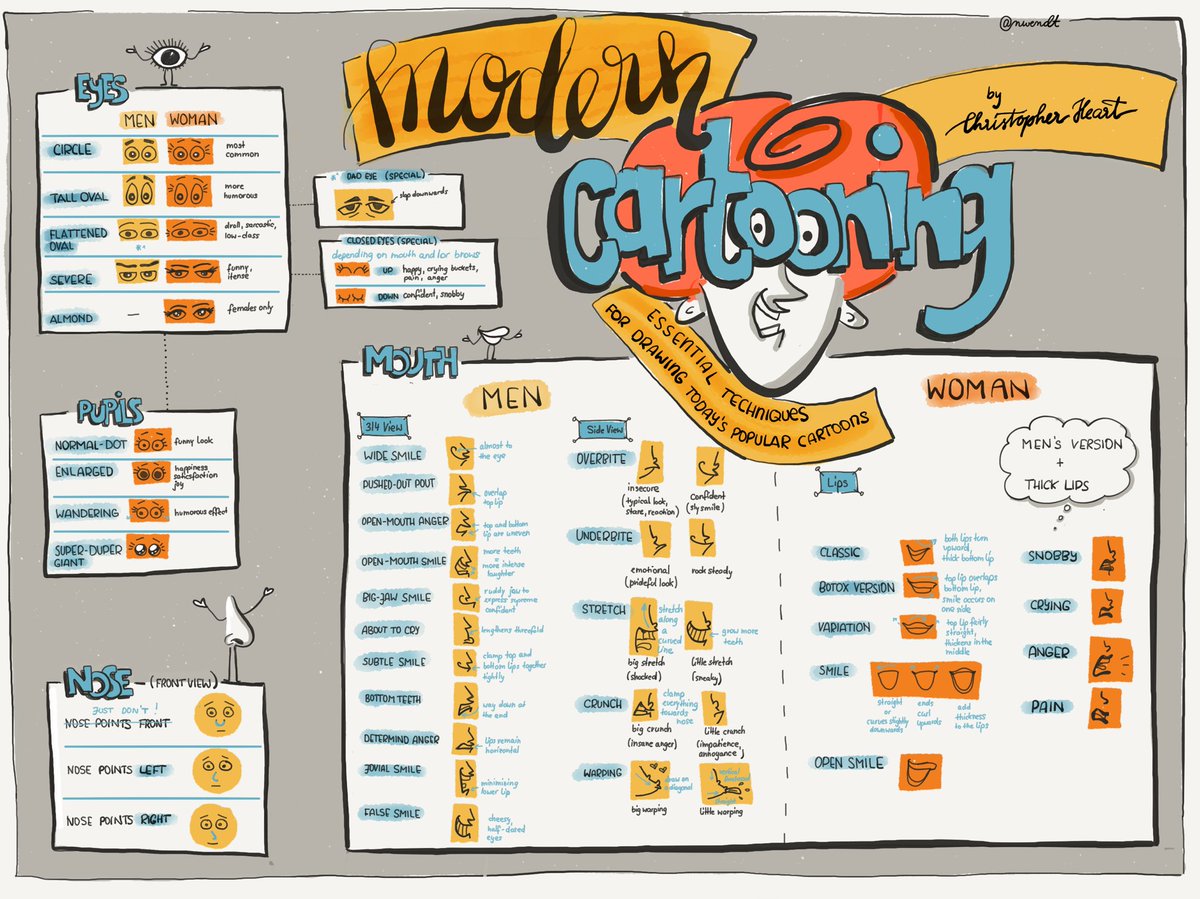 @nwendt
Modern
Cartooning
by
Christopher Heart
ESSENTIAL TECHNIQUES
FOR DRAWING TODAY'S POPULAR CARTOONS
EYES
MEN WOMAN
CIRCLE
most
common
TALL OVAL
more
humorous
FLATTENED
OVAL
droll, sarcastic,
low-class
*1
SEVERE
funny,
itense
ALMOND
—
females only
*1 DAD EYE (SPECIAL)
slop downwards
CLOSED EYES (SPECIAL)
depending on mouth and/or brows
UP happy, crying buckets,
pain, anger
DOWN confident, snobby
PUPILS
NORMAL-DOT
funny look
ENLARGED
happiness
satisfaction
joy
WANDERING
humorous effect
SUPER-DUPER
GIANT
NOSE (FRONT VIEW)
JUST DON'T!
NOSE POINTS FRONT
NOSE POINTS LEFT
NOSE POINTS RIGHT
MOUTH
MEN
3/4 View
WIDE SMILE
almost to
the eye
PUSHED-OUT POUT
overlap
top lip
OPEN-MOUTH ANGER
top and bottom
lip are uneven
OPEN-MOUTH SMILE
more teeth
=
more intense
laughter
BIG-JAW SMILE
ruddy jaw to
express supreme
confident
ABOUT TO CRY
lengthens threefold
SUBTLE SMILE
clamp top and
bottom lips together
tightly
BOTTOM TEETH
way down at
the end
DETERMIND ANGER
lips remain
horizontal
JOVIAL SMILE
minimizing
lower lip
FALSE SMILE
cheesy,
half-dazed
eyes
Side View
OVERBITE
insecure
(typical look,
stare, reaction)
Confident
(sly smile)
UNDERBITE
emotional
(prideful look)
rock steady
STRETCH
stretch
along
a
curved
line
grow more
teeth
big stretch
(shocked)
little stretch
(sneaky)
CRUNCH
clamp
everything
towards
nose
big crunch
(insane anger)
little crunch
(impatience,
annoyance)
WARPING
draw on
a diagonal
vertical forehead
straight
big warping
little warping
WOMAN
MEN'S VERSION
+
THICK LIPS
Lips
CLASSIC
both lips turn
upward,
thick bottom lip
BOTOX VERSION
top lip overlaps
bottom lip,
smile occurs on
one side
VARIATION
top lip fairly
straight,
thickens in the
middle
SMILE
straight
or
curves slightly
downwards
ends
curl
upwards
add
thickness
to the lips
OPEN SMILE
SNOBBY
CRYING
ANGER
PAIN